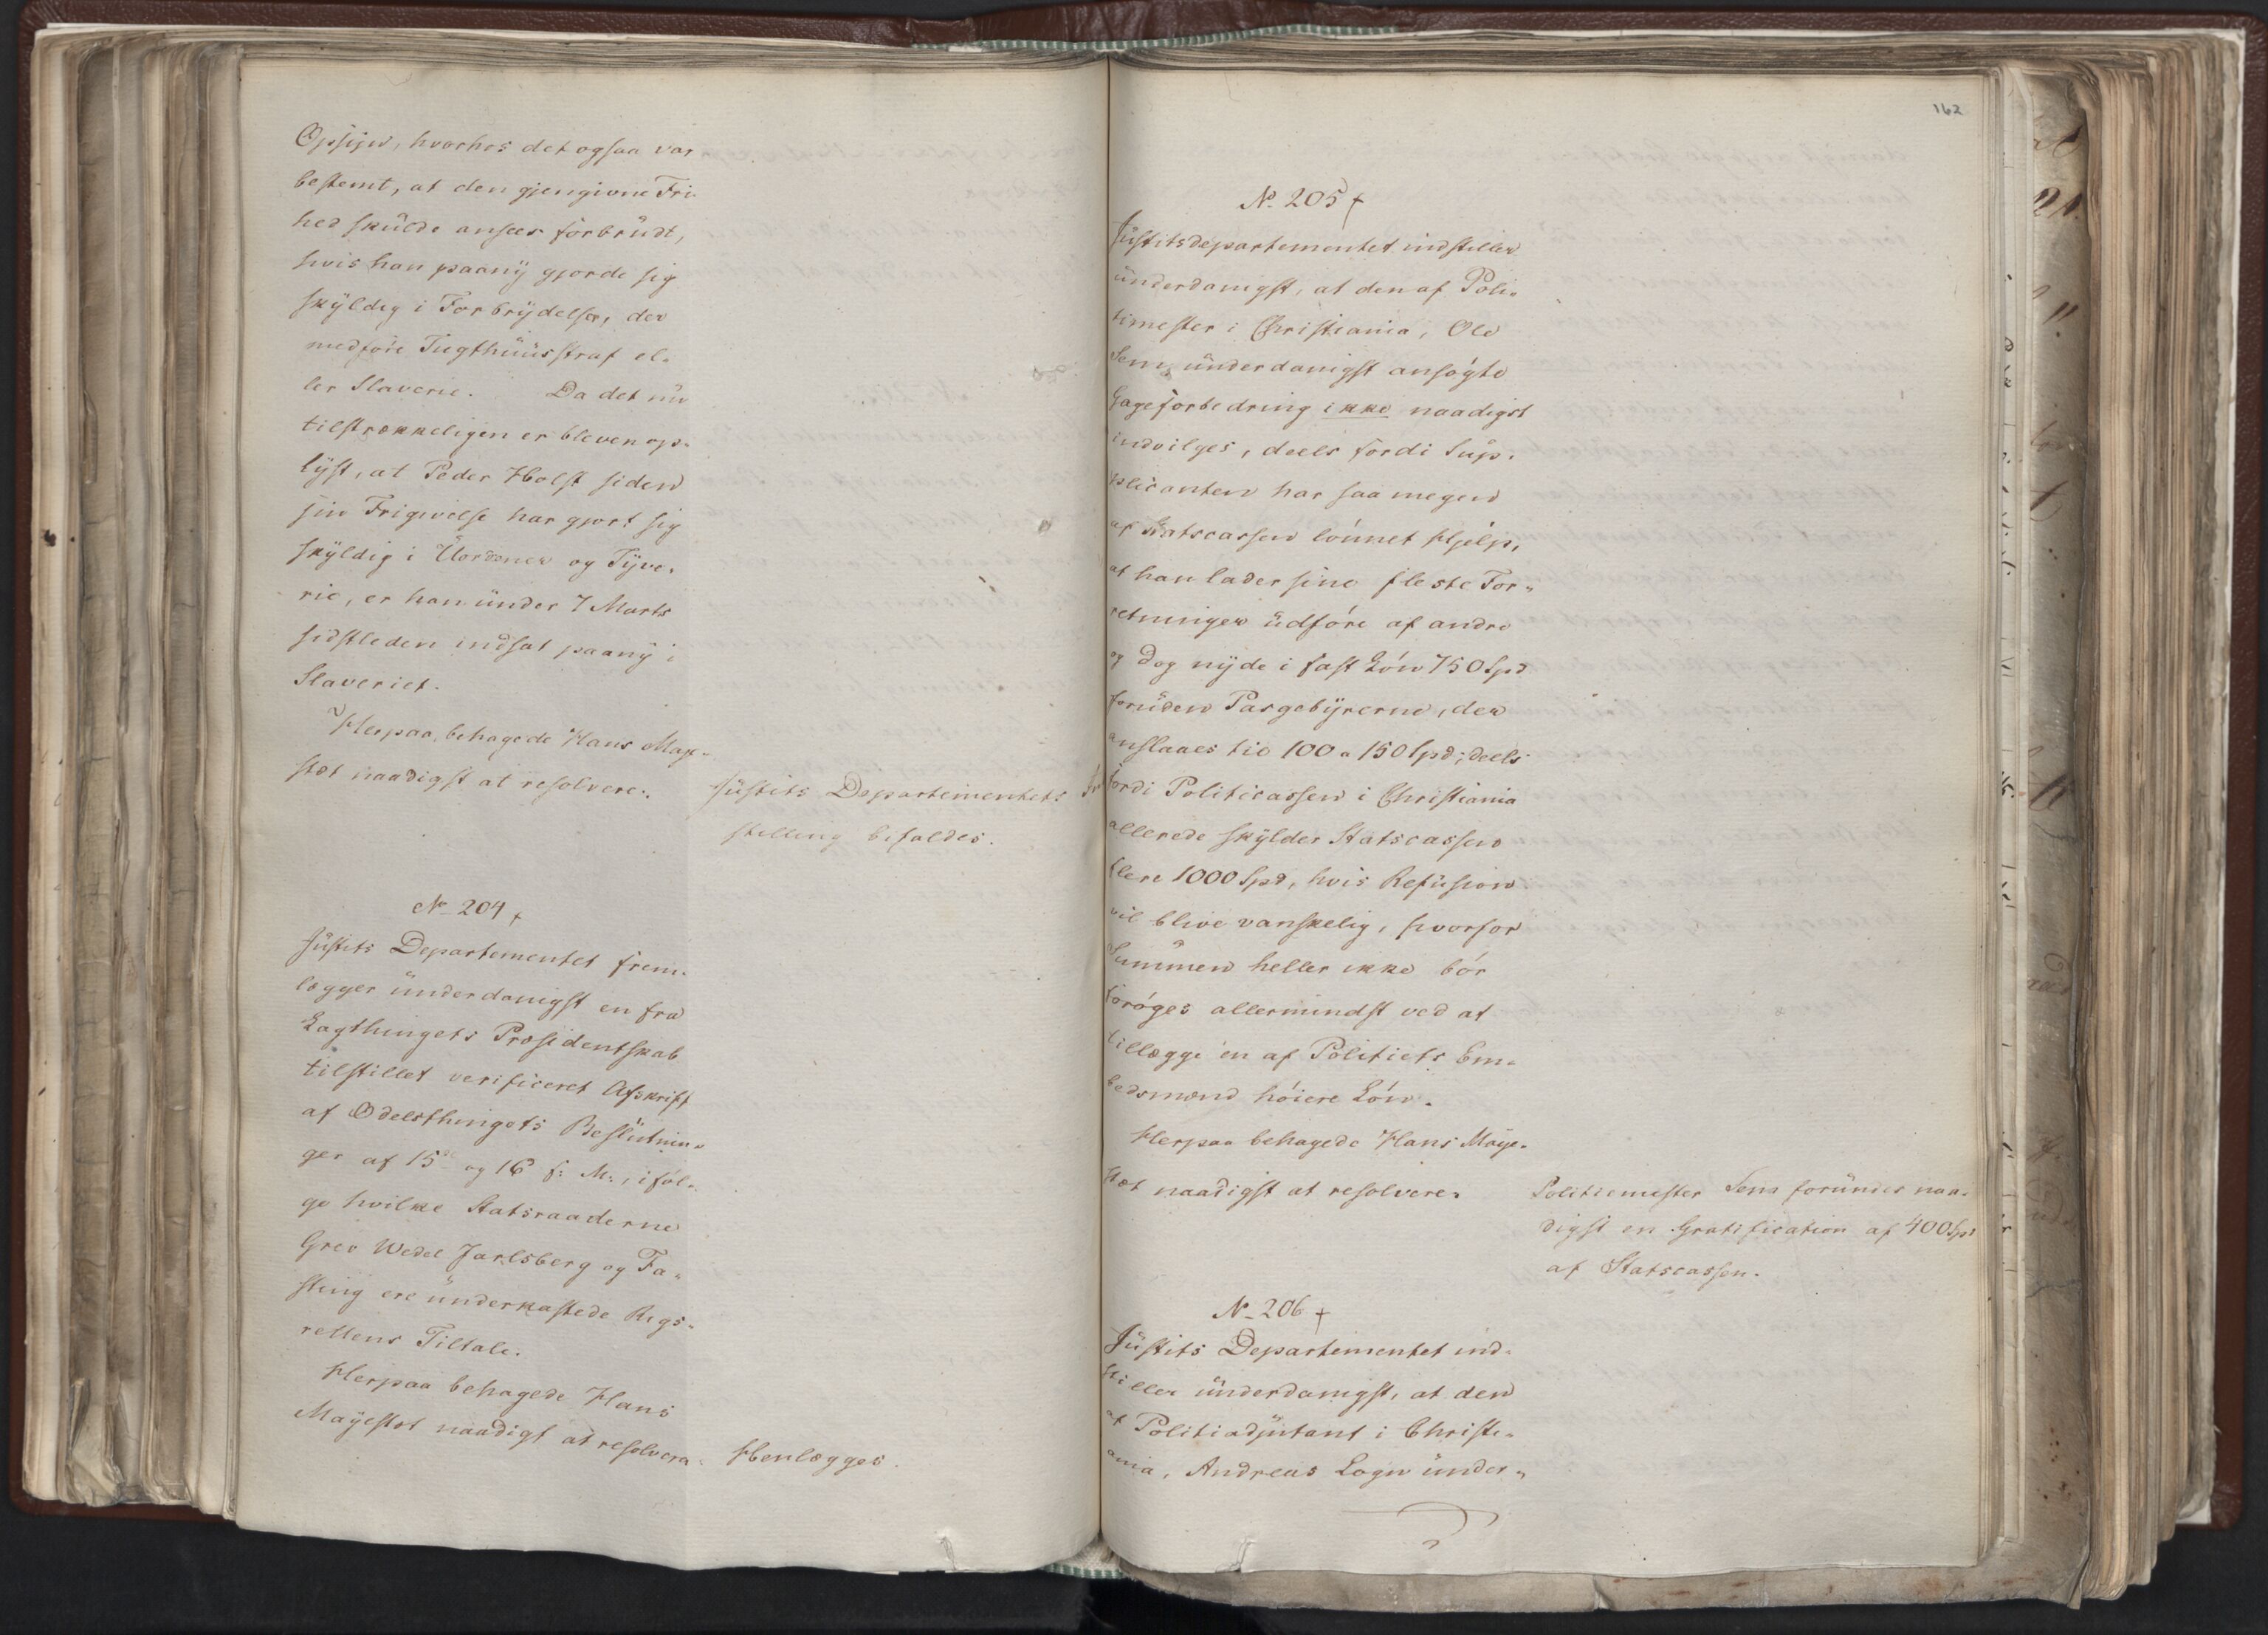 Opsÿn, hvorhos det ogsaa var
bestemt, at den gjengivne Fri-
hed skulde ansees forbrudt,
hvis han paanÿ gjorde sig
skÿldig i Forbrÿdelser, der
medføre Tugthuusstraf el-
ler Slaverie. Da det nu
tilstrækkeligen er bleven op-
lÿst, at Peder Holst siden
sin Frigivelse har gjort sig
skÿldig i Uordener og Tÿve-
rie, er han under 7 Marts
sidstleden indsat paanÿ i
Slaveriet.
Herpaa behagede Hans Maje-
stæt naadigst at resolvere:
Justits Departementets In
stilling bifaldes.
No 204
Justits Departementet frem-
lægger underdanigst en fra
Lagthingets Præsidentskab
tilstillet verificeret Afskrift
af Odelsthingets Beslutnin-
ger af 15de og 16 f: M:, iføl-
ge hvilke Statsraaderne
Grev Wedel Jarlsberg og Fa-
sting ere underkastede Rigs-
rettens Tiltale.
Herpaa behagede Hans
Mayestæt naadigt at resolvera:
Henlægges.
162
No 205
Justitsdepartementet indstiller
underdanigst, at den af Poli-
timester i Christiania, Ole
Sem, underdanigst ansøgte
Gageforbedring ikke naadigst
indvilges, deels fordi Sup-
plicanten har saa megen
af Statscassen lønnet Hjelp,
at han lader sine fleste For-
retninger udføre af andre
og dog nÿde i fast Løn 750 Spd
foruden Pasgebÿrerne, der
anslaaes til 100 a 150 Spd; deels
fordi Politicassen i Christiania
allerede skÿlder Statscassen
flere 1000 Spd, hvis Refusion
vil blive vanskelig, hvorfor
Summen heller ikke bør
forøges allermindst ved at
tillægge en af Politiets Em-
bedsmænd høiere Løn.
Herpaa behagede Hans Maye-
stæt naadigst at resolvere:
Politiemester Sem forundes naa-
digst en Gratification af 400 Spd
af Statscassen.
No 206
Justits Departementet ind-
stiller underdanigst, at den
af Politiadjutant i Christi-
ania, Andreas Logn under-